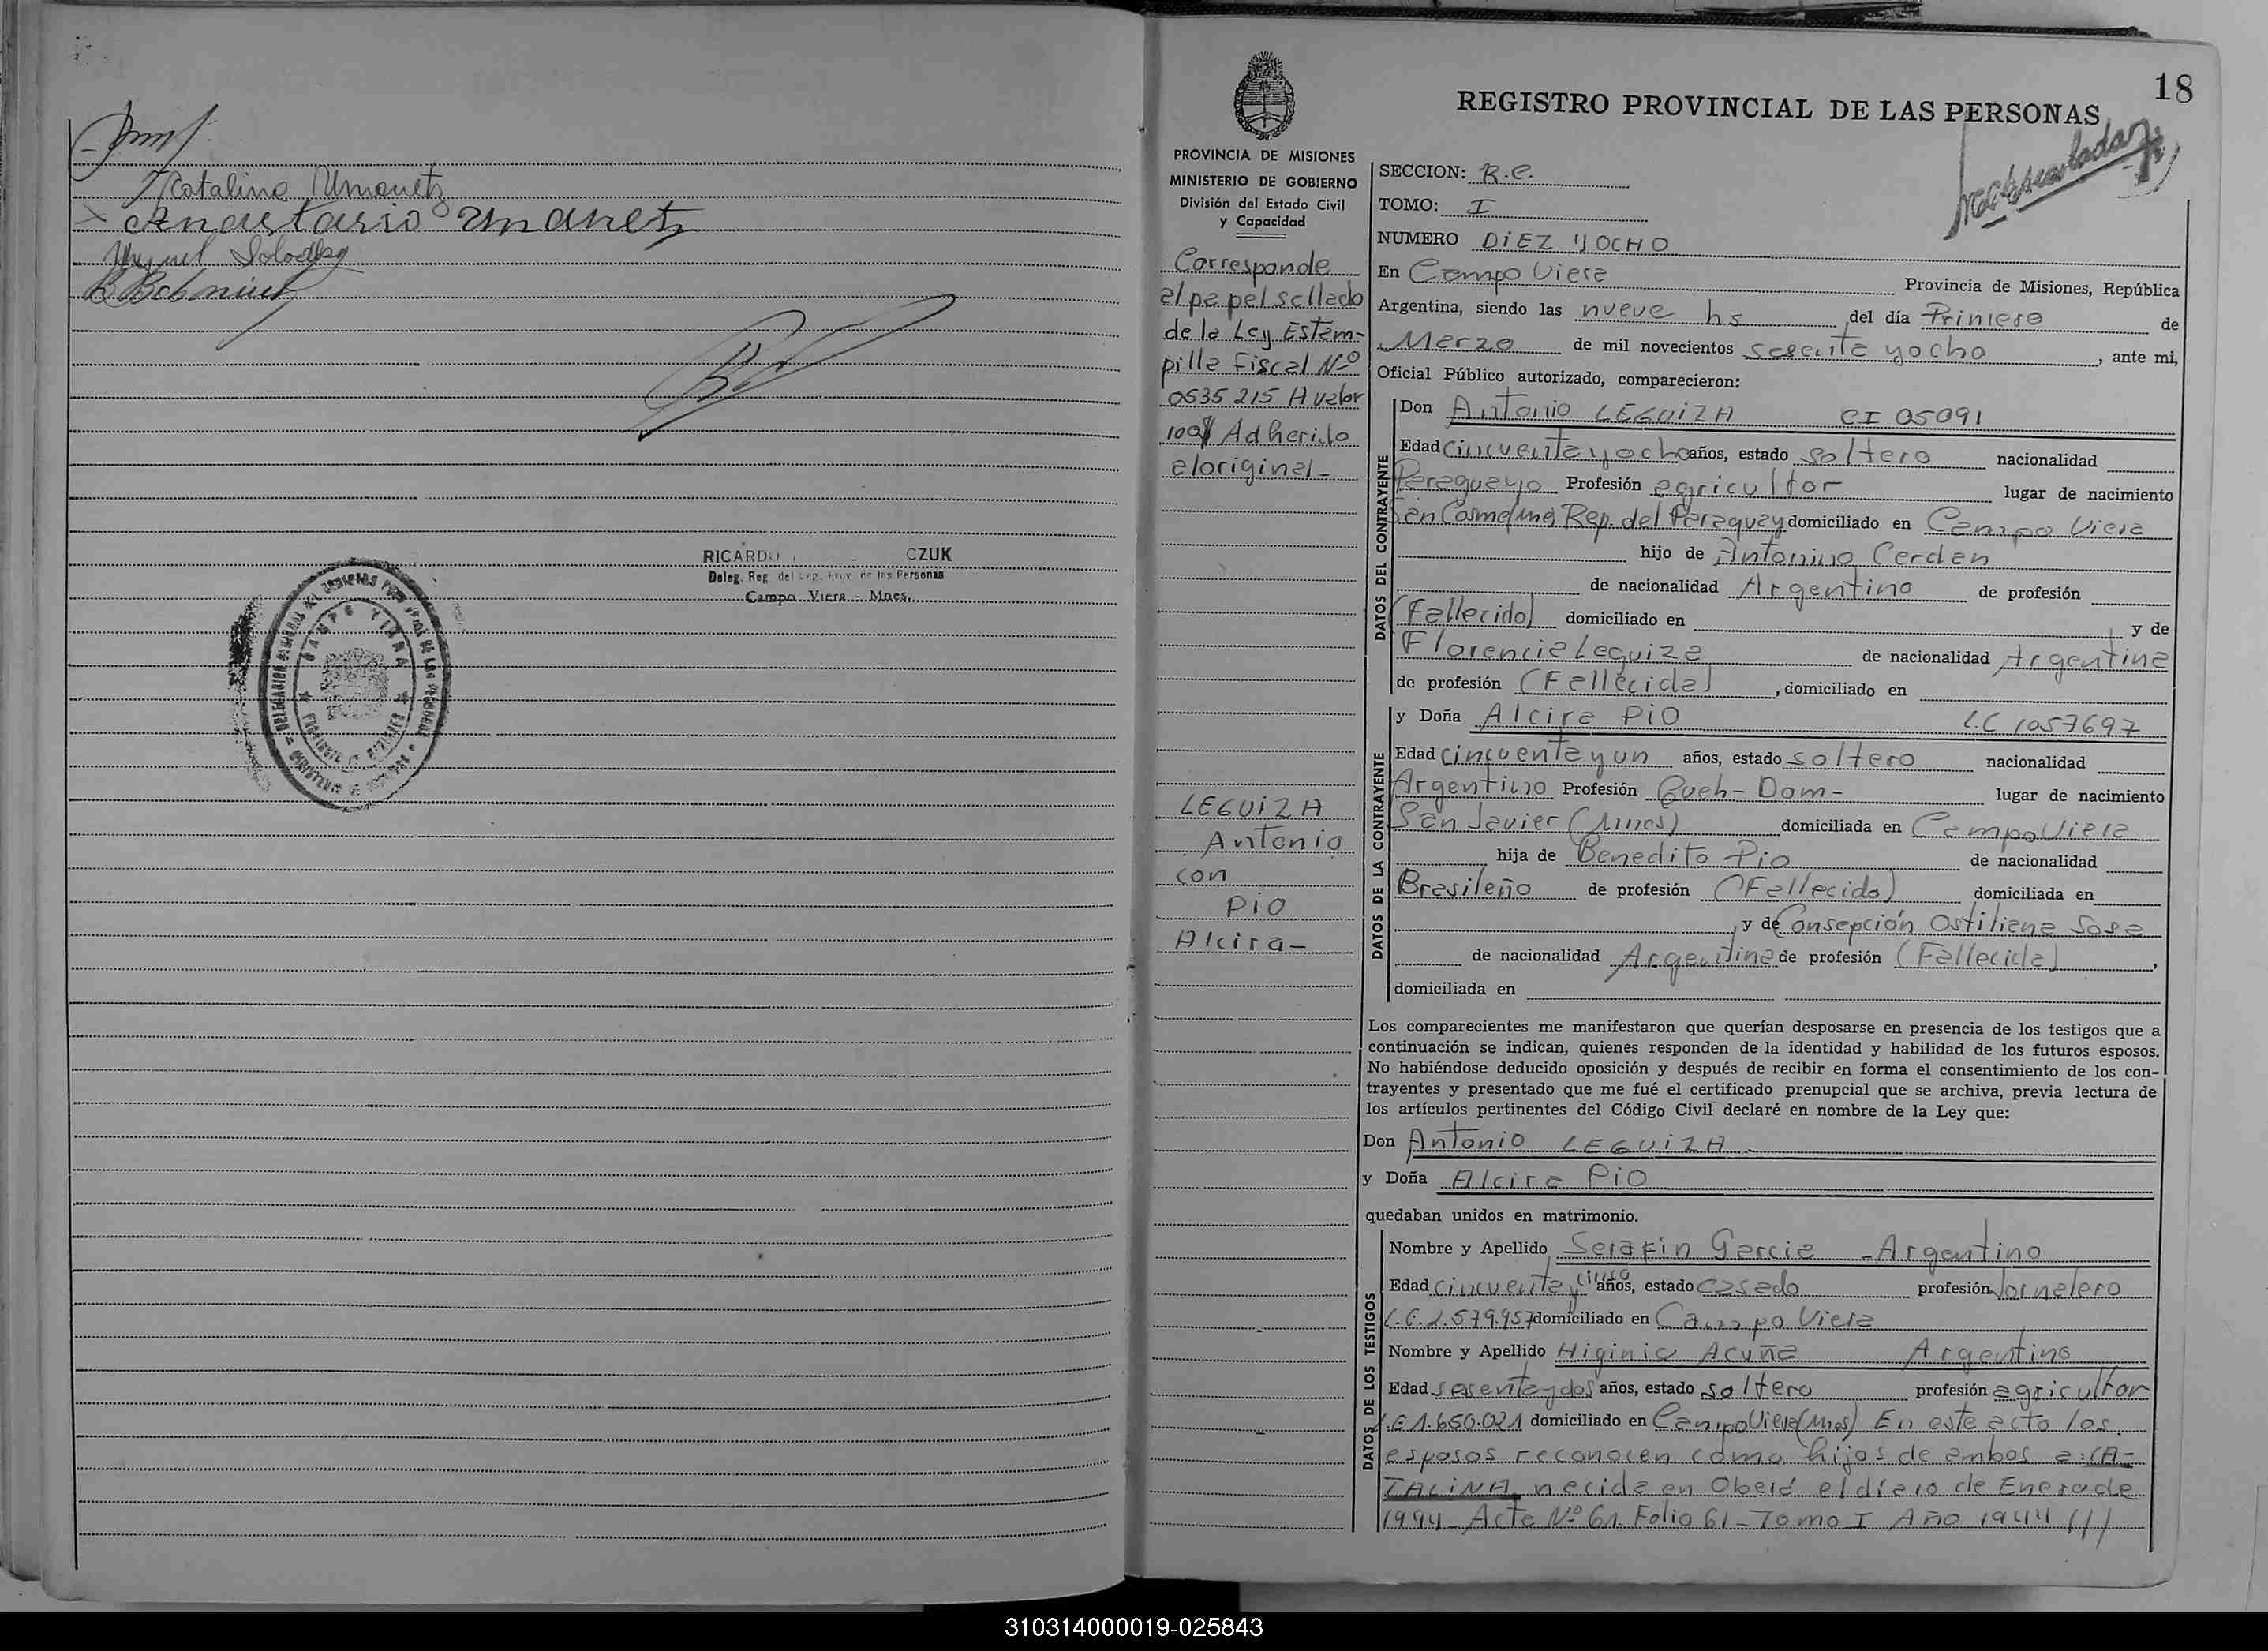 Catalina Umanetz
Anastasio Umanetz
Miguel
RICARDO CZUK
Deleg. Reg. del Reg. Prov. de las Personas
Campo Viera - Mnes.
CAMPO VIERA
18
REGISTRO PROVINCIAL DE LAS PERSONAS
PROVINCIA DE MISIONES
MINISTERIO DE GOBIERNO
División del Estado Civil
y Capacidad
Corresponde
al papel sellado
de la Ley Estam-
pilla Fiscal Nº
0535215 A valor
100$ Adherido
al original-
LEGUIZA
Antonio
con
PIO
Alcira-
SECCION: R.C.
TOMO: I
NUMERO DIEZ YOCHO
En Campo Viera Provincia de Misiones, República
Argentina, siendo las nueve hs del día Primero de
Marzo de mil novecientos sesenta yocho, ante mi,
Oficial Público autorizado, comparecieron:
DATOS DEL CONTRAYENTE
Don Antonio LEGUIZA CI 05091
Edad cincuenta yocho años, estado soltero nacionalidad
Paraguayo Profesión agricultor lugar de nacimiento
San Cosme Rep. del Paraguay domiciliado en Campo Viera
hijo de Antonino Cerdan
de nacionalidad Argentino de profesión
(Fallecido) domiciliado en y de
Florencia Leguiza de nacionalidad Argentina
de profesión (Fallecida), domiciliado en
DATOS DE LA CONTRAYENTE
y Doña Alcira PIO L.C 1057697
Edad cincuenta y un años, estado soltero nacionalidad
Argentino Profesión Queh-Dom- lugar de nacimiento
San Javier (Mnes) domiciliada en Campo Viera
hija de Benedito Pio de nacionalidad
Brasileño de profesión (Fallecido) domiciliada en
y de Consepción Ostiliana Sosa
de nacionalidad Argentina de profesión (Fallecida),
domiciliada en
Los comparecientes me manifestaron que querían desposarse en presencia de los testigos que a
continuación se indican, quienes responden de la identidad y habilidad de los futuros esposos.
No habiéndose deducido oposición y después de recibir en forma el consentimiento de los con-
trayentes y presentado que me fué el certificado prenupcial que se archiva, previa lectura de
los artículos pertinentes del Código Civil declaré en nombre de la Ley que:
Don Antonio LEGUIZA-
y Doña Alcira PIO
quedaban unidos en matrimonio.
DATOS DE LOS TESTIGOS
Nombre y Apellido Serafin Garcia - Argentino
Edad cincuenta y cinco años, estado casado profesión Jornalero
domiciliado en Campo Viera
Nombre y Apellido Higinio Acuña Argentino
Edad sesentaydos años, estado soltero profesión agricultor
L.E 1.650.021 domiciliado en Campo Viera (Mnes) En este acto los
esposos reconocen como hijos de ambos a: CA-
TALINA nacida en Oberá el día 10 de Enero de
1944- Acta Nº 61 Folio 61-Tomo I Año 1944 ///
310314000019-025843